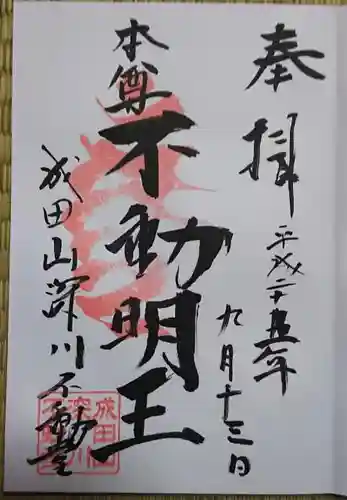 奉拝
平成二十五年
九月十三日
本尊
不動明王
成田山深川不動堂
成田山
深川
不動堂